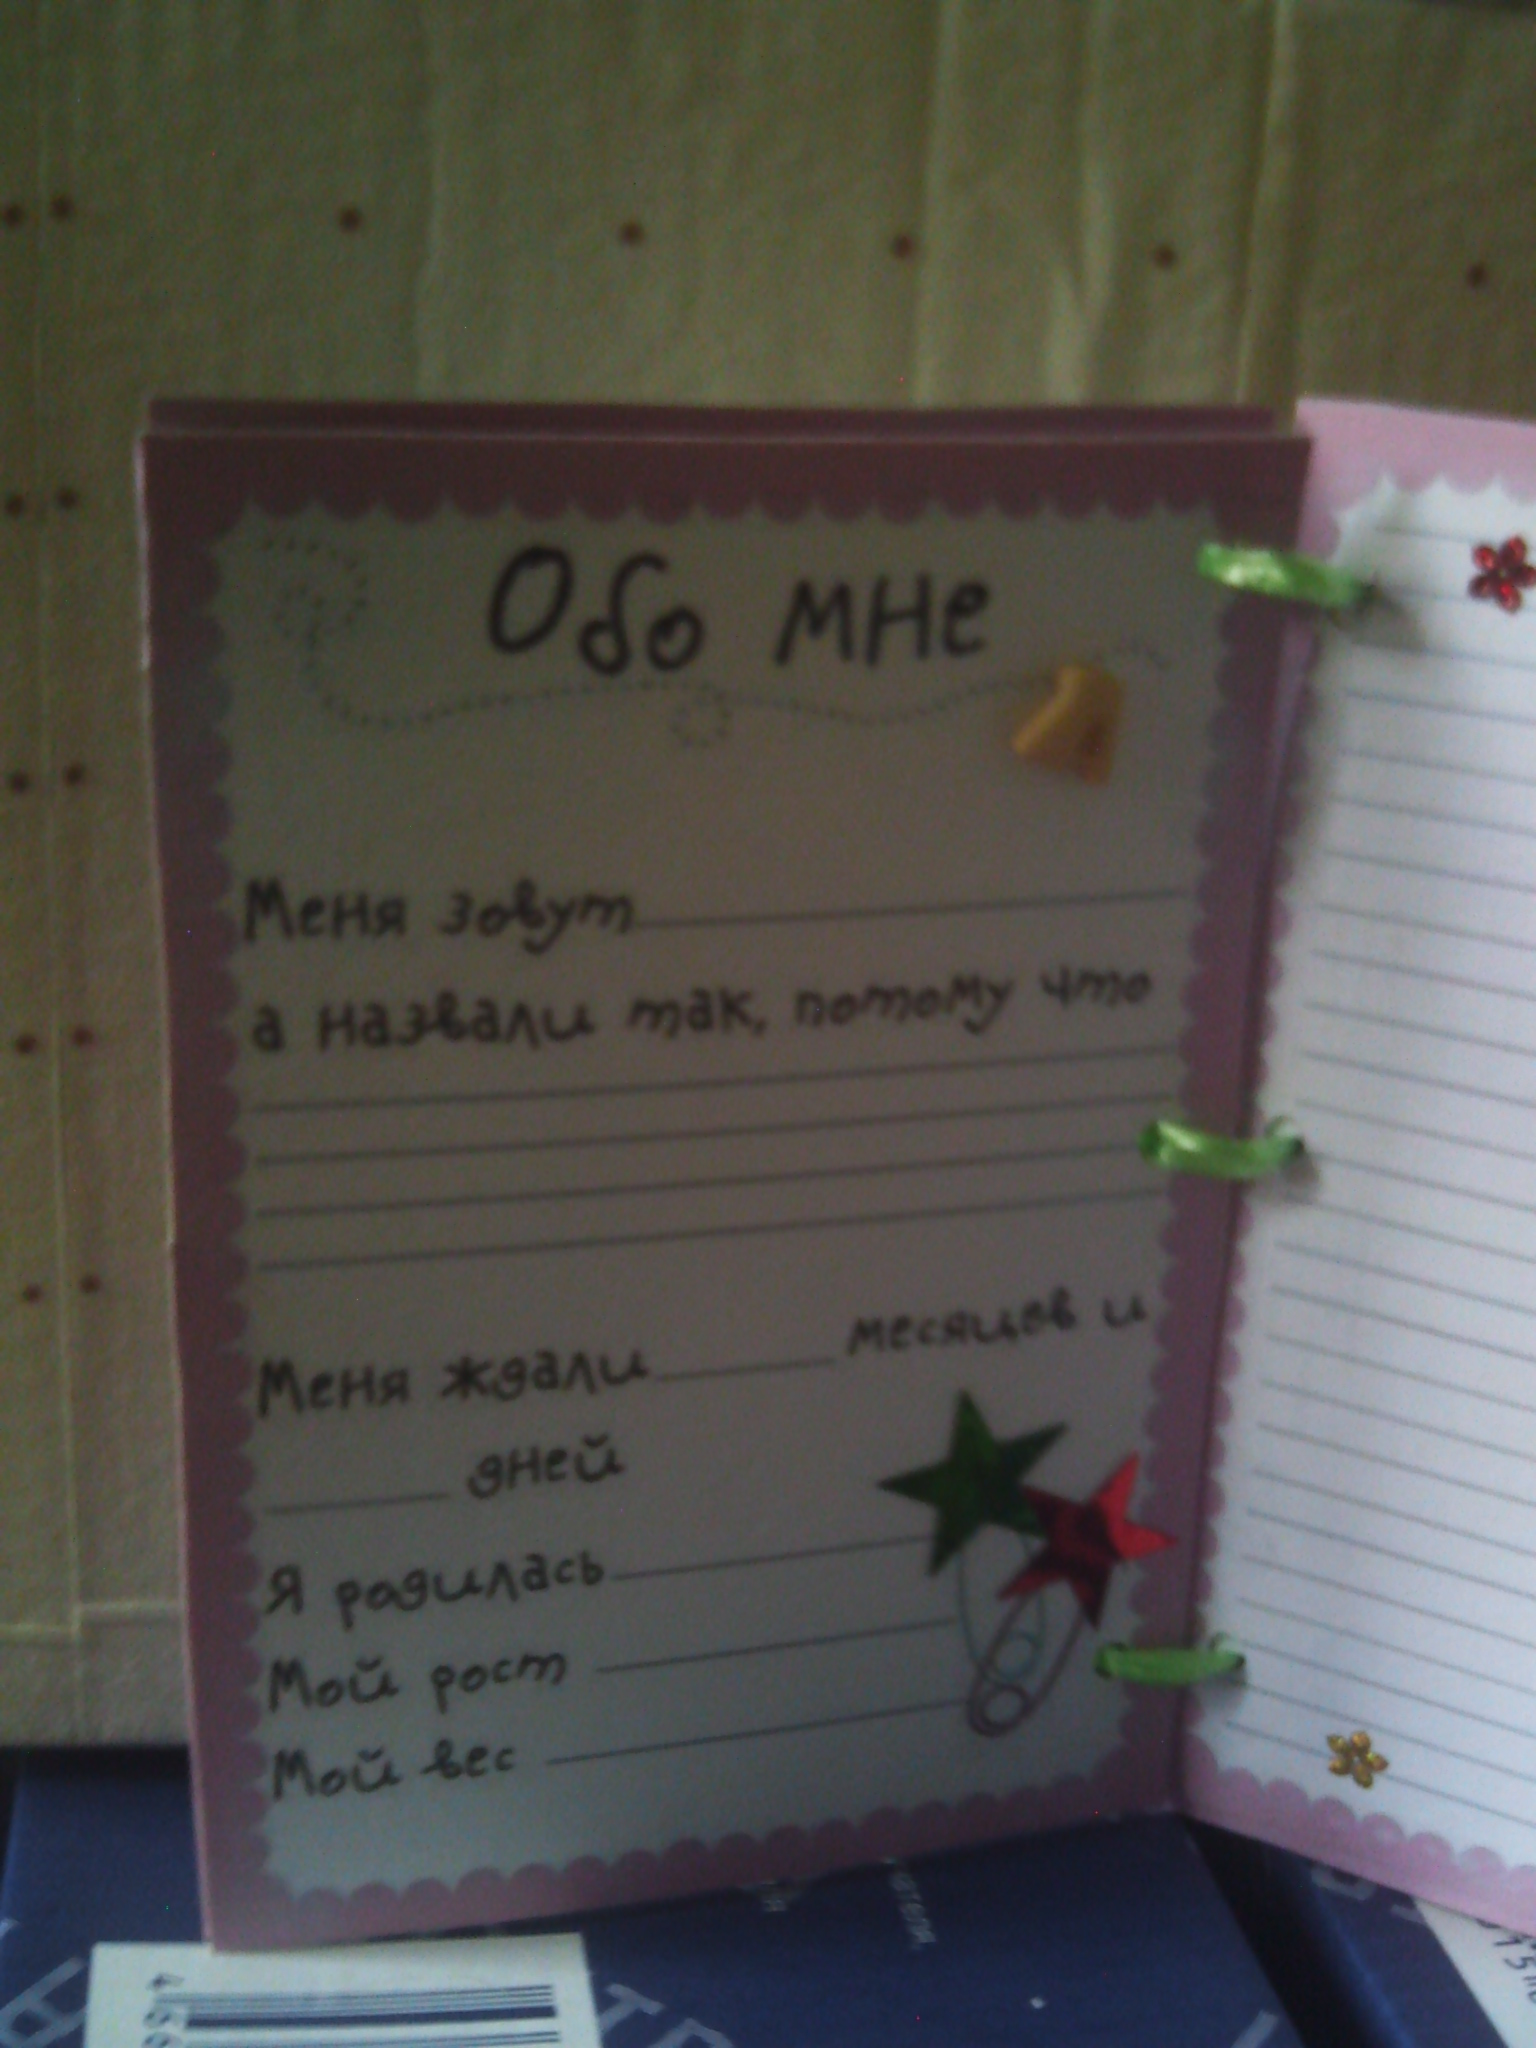 Обо мне
Меня зовут
а назвали так, потому что
Меня ждали месяцев и
дней
Я родилась
Мой рост
Мой вес